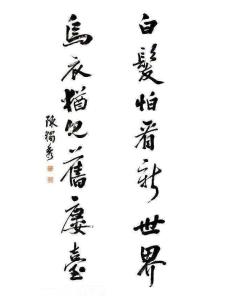 白髮怕看新世界
烏衣猶見舊慶臺
陳獨秀